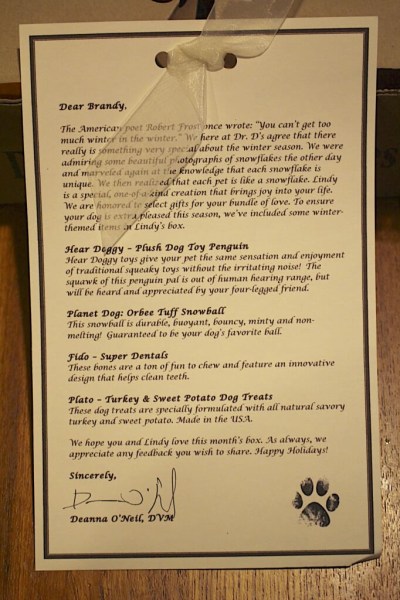 Dear Brandy,
The American poet Robert Frost once wrote: "You can't get too
much winter in the winter." We here at Dr. D's agree that there
really is something very special about the winter season. We were
admiring some beautiful photographs of snowflakes the other day
and marveled again at the knowledge that each snowflake is
unique. We then realized that each pet is like a snowflake. Lindy
is a special, one-of-a-kind creation that brings joy into your life.
We are honored to select gifts for your bundle of love. To ensure
your dog is extra pleased this season, we've included some winter-
themed items in Lindy's box.
Hear Doggy - Plush Dog Toy Penguin
Hear Doggy toys give your pet the same sensation and enjoyment
of traditional squeaky toys without the irritating noise! The
squawk of this penguin pal is out of human hearing range, but
will be heard and appreciated by your four-legged friend.
Planet Dog: Orbee Tuff Snowball
This snowball is durable, buoyant, bouncy, minty and non-
melting! Guaranteed to be your dog's favorite ball.
Fido - Super Dentals
These bones are a ton of fun to chew and feature an innovative
design that helps clean teeth.
Plato - Turkey & Sweet Potato Dog Treats
These dog treats are specially formulated with all natural savory
turkey and sweet potato. Made in the USA.
We hope you and Lindy love this month's box. As always, we
appreciate any feedback you wish to share. Happy Holidays!
Sincerely,
Deanna O'Neil, DVM